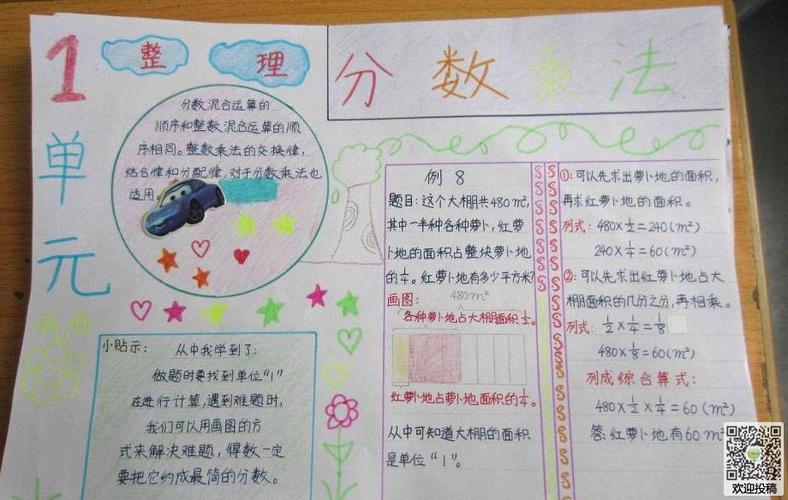 1
单
元
整理
分数乘法
分数混合运算的
顺序和整数混合运算的顺
序相同。整数乘法的交换律,
结合律和分配律,对于分数乘法也
适用。
小贴示:
从中我学到了:
做题时要找到单位“1”
在进行计算,遇到难题时,
我们可以用画图的方
式来解决难题,得数一定
要把它约成最简的分数。
例 8
题目:这个大棚共480m²,
其中一半种各种萝卜,红萝
卜地的面积占整块萝卜地
的1/4。红萝卜地有多少平方米?
画图: 480m²
各种萝卜地占大棚面积1/2。
红萝卜地占萝卜地面积的1/4。
从中可知道大棚的面积
是单位“1”。
①:可以先求出萝卜地的面积,
再求红萝卜地的面积。
列式:480×1/2=240(m²)
240×1/4=60(m²)
②:可以先求出红萝卜地占大
棚面积的几分之分,再相乘。
列式:1/2×1/4=1/8
480×1/8=60(m²)
列成综合算式:
480×1/2×1/4=60(m²)
答:红萝卜地有60m²
欢迎投稿